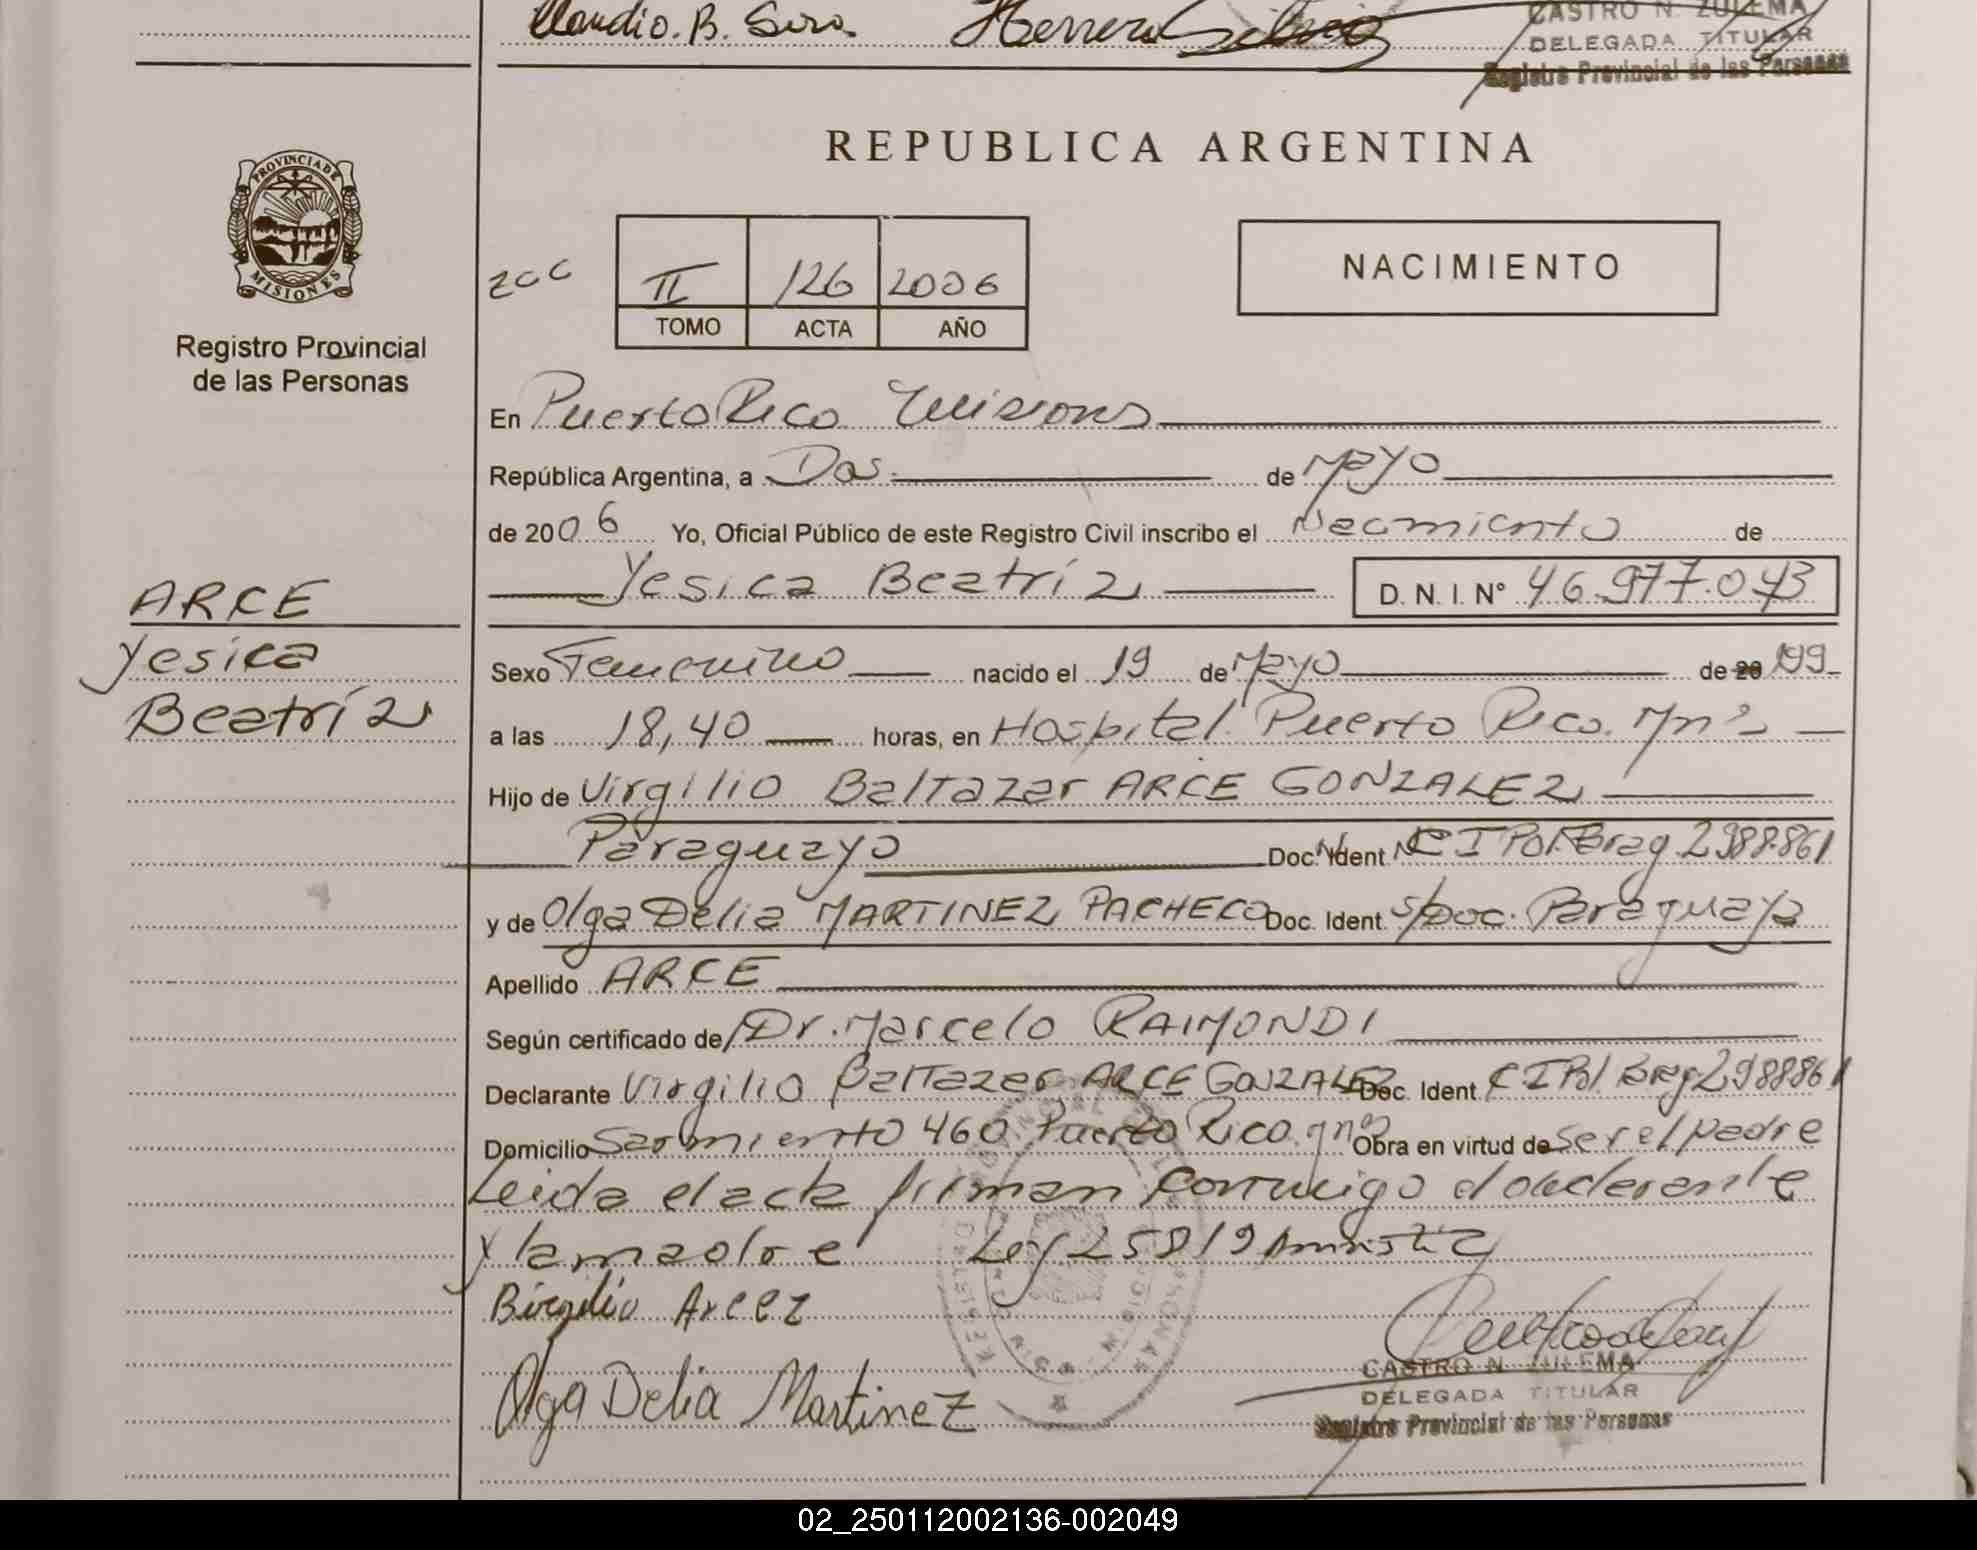 Claudio. B. Siro. Herrera Silvia
CASTRO N. ZULEMA
DELEGADA TITULAR
Registro Provincial de las Personas
PROVINCIA DE
MISIONES
Registro Provincial
de las Personas
REPUBLICA ARGENTINA
NACIMIENTO
200 II 126 2006
TOMO ACTA AÑO
En Puerto Rico Misiones
República Argentina, a Dos de Mayo
de 2006 Yo, Oficial Público de este Registro Civil inscribo el Nacimiento de
Yesica Beatríz D. N. I. N° 46.977.043
ARCE
Yesica
Beatríz
Sexo Femenino nacido el 19 de Mayo de 20 199
a las 18,40 horas, en Hospital Puerto Rico. Mnes
Hijo de Virgilio Baltazar ARCE GONZALEZ
Paraguayo Doc. Ident N° C I Pol. Parag 2988.861
y de Olga Delia MARTINEZ PACHECO Doc. Ident. s/Doc. Paraguaya
Apellido ARCE
Según certificado de Dr. Marcelo RAIMONDI
Declarante Virgilio Baltazar ARCE GONZALEZ Doc. Ident C I Pol. Parag 2988861
Domicilio Sarmiento 460 Puerto Rico. Mnes Obra en virtud de ser el padre
Leida el acta firman conmigo el declarante
y la madre Ley 25819 Amnistia
Birgilio Arcez
Olga Delia Martinez
CASTRO N. ZULEMA
DELEGADA TITULAR
Registro Provincial de las Personas
02_250112002136-002049